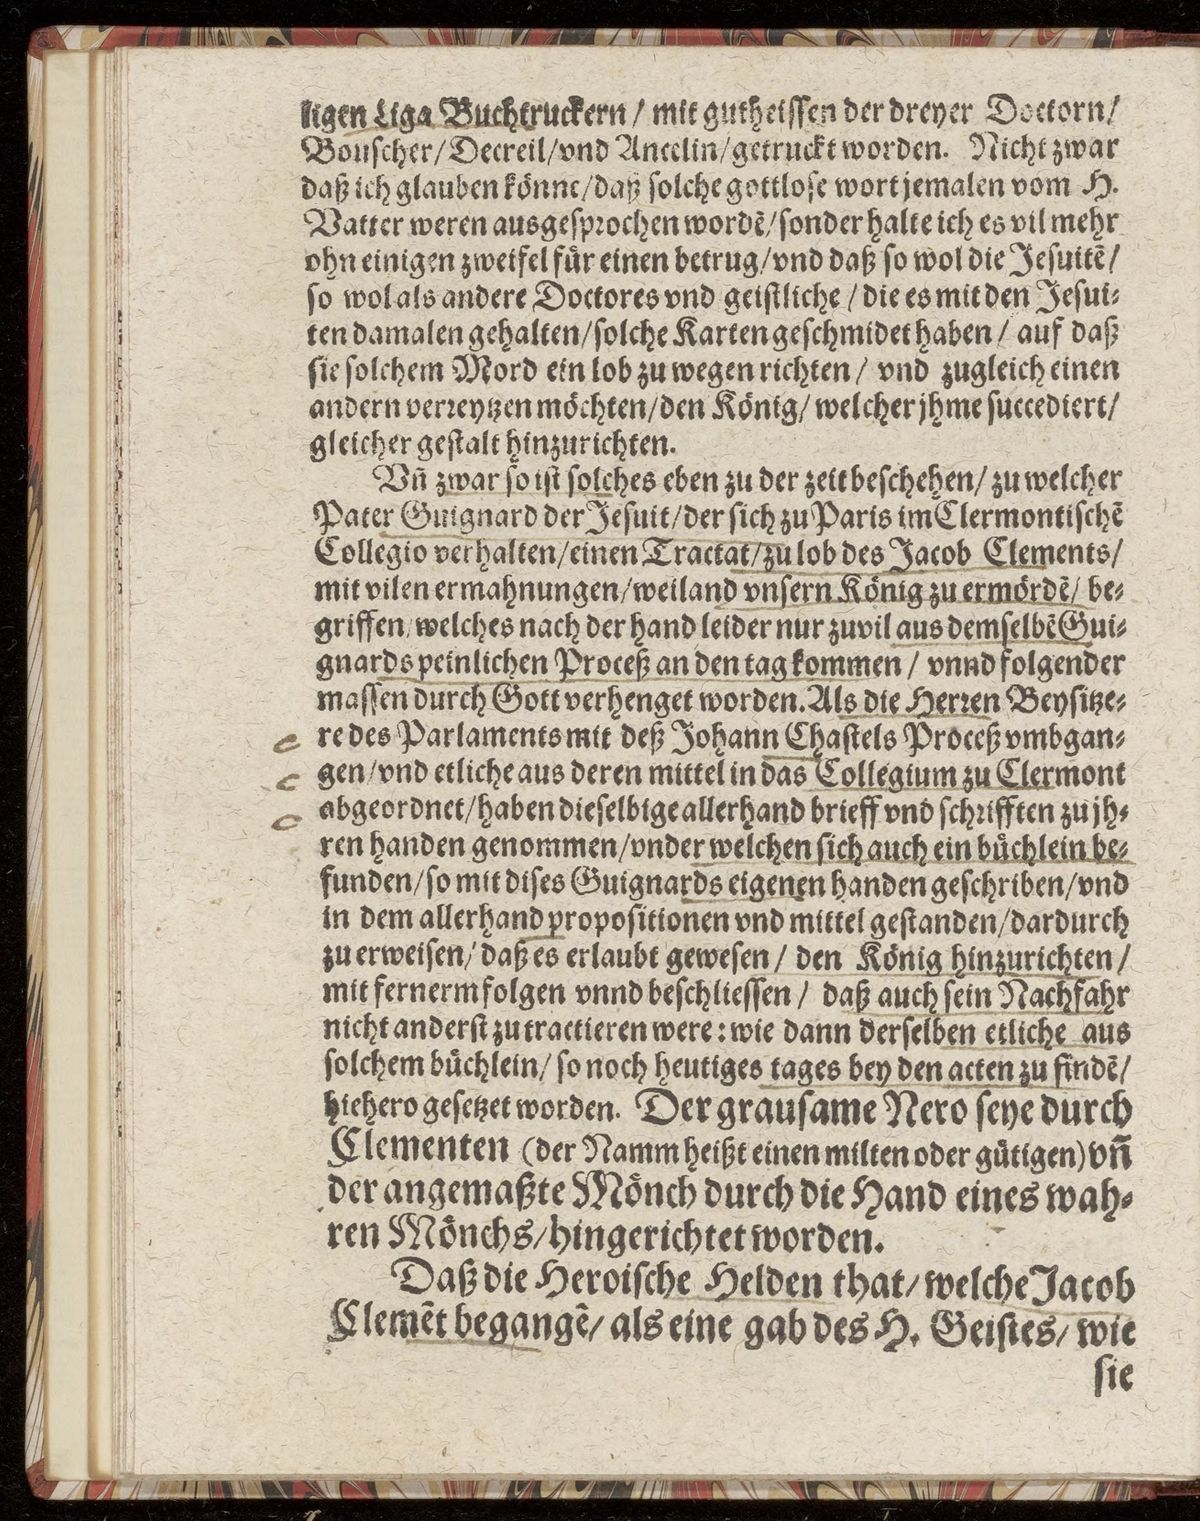 ligen Liga Buchtruckern / mit gutheissen der dreyer Doctorn /
Bouscher / Decreil / vnd Ancelin / getruckt worden. Nicht zwar
daß ich glauben könne / daß solche gottlose wort jemalen vom H.
Vatter weren ausgesprochen wordē / sonder halte ich es vil mehr
ohn einigen zweifel für einen betrug / vnd daß so wol die Jesuitē /
so wol als andere Doctores vnd geistliche / die es mit den Jesui-
ten damalen gehalten / solche Karten geschmidet haben / auf daß
sie solchem Mord ein lob zu wegen richten / vnd zugleich einen
andern verreytzen möchten / den König / welcher jhme succediert /
gleicher gestalt hinzurichten.
Vñ zwar so ist solches eben zu der zeit beschehen / zu welcher
Pater Guignard der Jesuit / der sich zu Paris im Clermontischē
Collegio verhalten / einen Tractat / zu lob des Jacob Clements /
mit vilen ermahnungen / weiland vnsern König zu ermördē / be-
griffen / welches nach der hand leider nur zuvil aus demselbē Gui-
gnards peinlichen Proceß an den tag kommen / vnnd folgender
massen durch Gott verhenget worden. Als die Herren Beysitze-
re des Parlaments mit deß Johann Chastels Proceß vmbgan-
gen / vnd etliche aus deren mittel in das Collegium zu Clermont
abgeordnet / haben dieselbige allerhand brieff vnd schrifften zu jh-
ren handen genommen / vnder welchen sich auch ein büchlein be-
funden / so mit dises Guignards eigenen handen geschriben / vnd
in dem allerhand propositionen vnd mittel gestanden / dardurch
zu erweisen / daß es erlaubt gewesen / den König hinzurichten /
mit fernerm folgen vnnd beschliessen / daß auch sein Nachfahr
nicht anderst zu tractieren were : wie dann derselben etliche aus
solchem büchlein / so noch heutiges tages bey den acten zu findē /
hiehero gesetzet worden. Der grausame Nero seye durch
Clementen (der Namm heißt einen milten oder gütigen) vñ
der angemaßte Mönch durch die Hand eines wah-
ren Mönchs / hingerichtet worden.
Daß die Heroische Helden that / welche Jacob
Clemēt begangē / als eine gab des H. Geistes / wie
sie